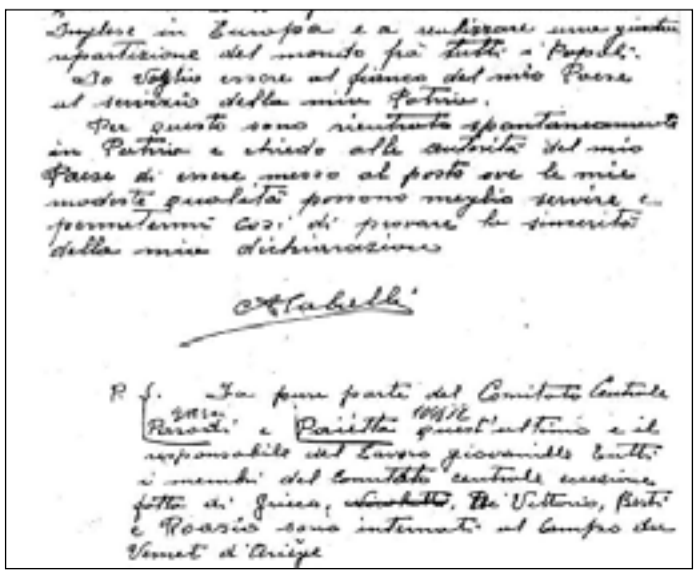 Inglese in Europa e a realizzare una giusta
repartizione del mondo frà tutti i Popoli.
Io Voglio essere al fianco del mio Paese
al servizio della mia Patria.
Per questo sono rientrato spontaneamente
in Patria e chiedo alle autorità del mio
Paese di essere messo al posto ove le mie
modeste qualità possono meglio servire e
permetermi così di provare la sincerità
della mia dichiarazione
P. S. Fa pure parte del Comitato Centrale
Parodi e Pajetta quest'ultimo e il
responsabile del Lavoro giovanille tutti
i membri del comitato centrale eccesione
fatta di Grieco, Di Vittorio, Berti
e Roasio sono internati al Campo du
Vernet d'Ariège